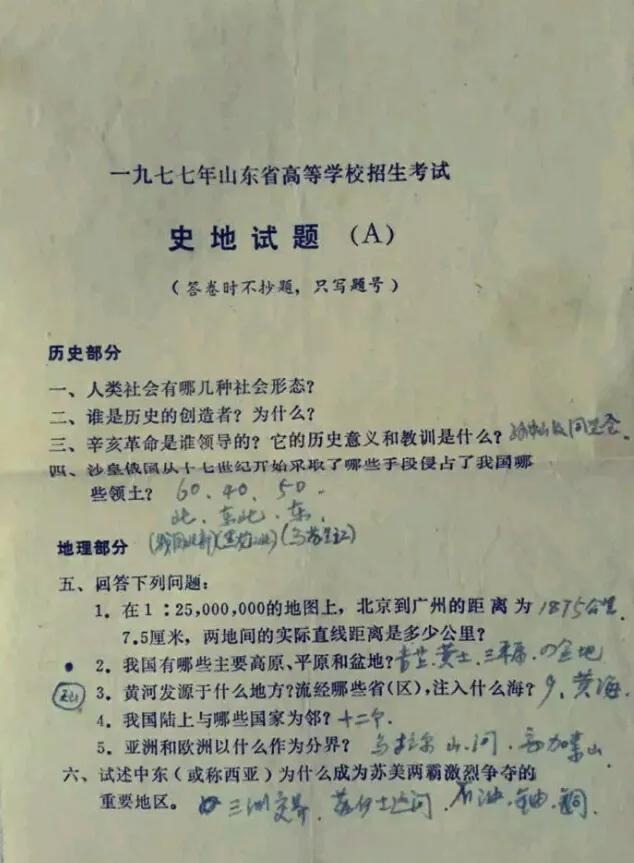 一九七七年山东省高等学校招生考试
史地试题（A）
（答卷时不抄题，只写题号）
历史部分
一、人类社会有哪几种社会形态？
二、谁是历史的创造者？为什么？
三、辛亥革命是谁领导的？它的历史意义和教训是什么？同盟会.
四、沙皇俄国从十七世纪开始采取了哪些手段侵占了我国哪
些领土？ 60、40、50.
北、东北、东.
地理部分
五、回答下列问题：
1．在1：25,000,000的地图上，北京到广州的距离为 1875公里
7.5厘米，两地间的实际直线距离是多少公里？
2．我国有哪些主要高原、平原和盆地？青芷、黄土、三平原、四盆地
3．黄河发源于什么地方？流经哪些省（区），注入什么海？9、黄海.
4．我国陆上与哪些国家为邻？十二个.
5．亚洲和欧洲以什么作为分界？乌拉尔山、河、高加索山
六、试述中东（或称西亚）为什么成为苏美两霸激烈争夺的
重要地区。三洲交界、苏伊士运河、石油、铀、铜.